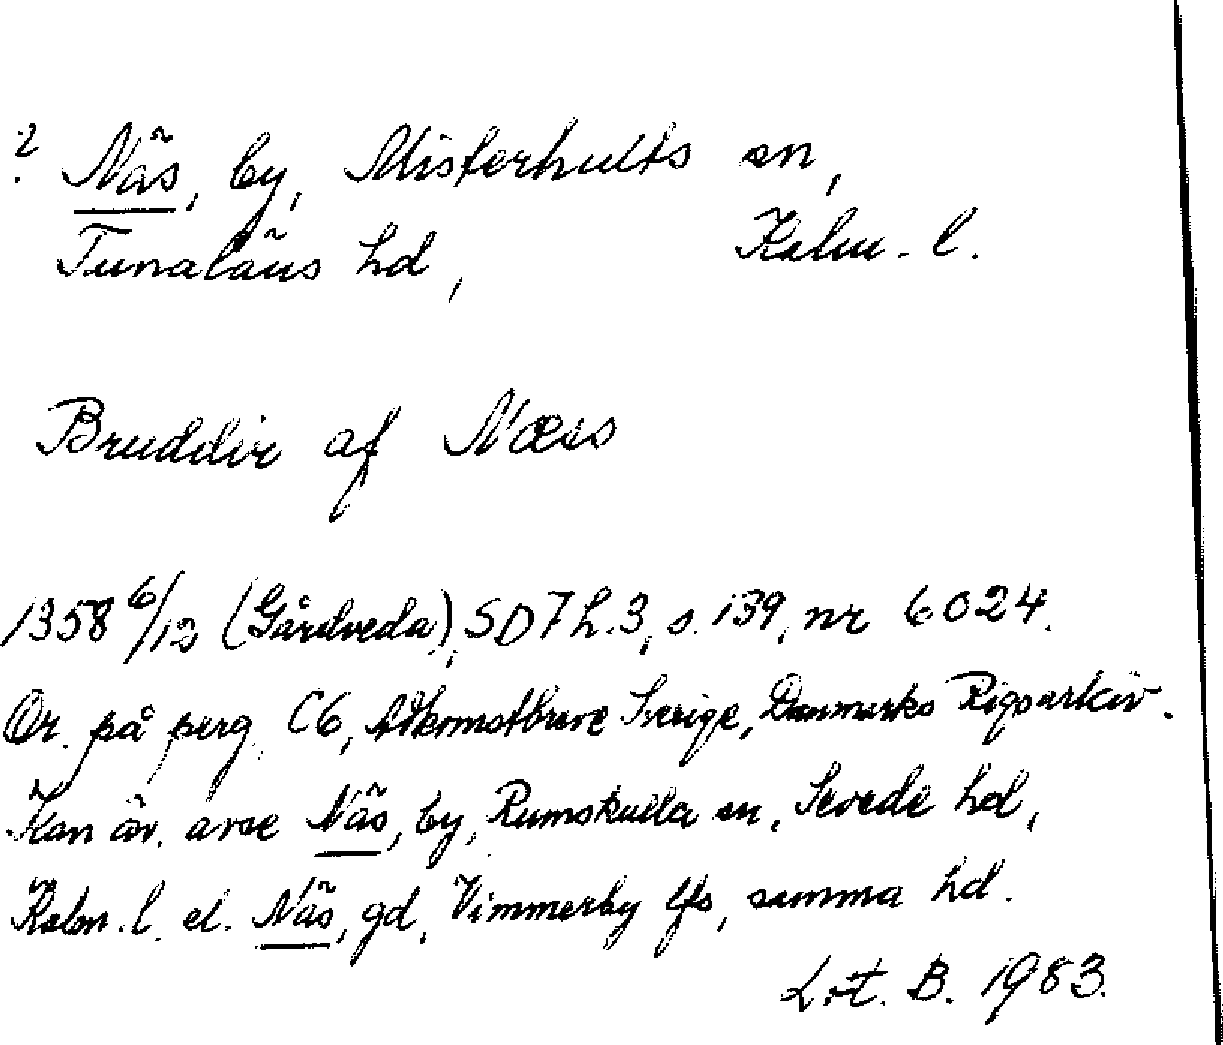 ? Näs, by, Misterhults sn,
Tunaläns hd, Kalm. l.
Bruddir af Næss
1358 6/12 (Gårdveda), SD 7 h. 3, s. 139, nr 6024.
Or. på perg, C6, Adkomstbreve Sverige, Danmarks Rigsarkiv.
Kan äv. avse Näs, by, Rumskulla sn, Sevede hd,
Kalm. l. el. Näs, gd, Vimmerby lfs, samma hd.
B. 1983.